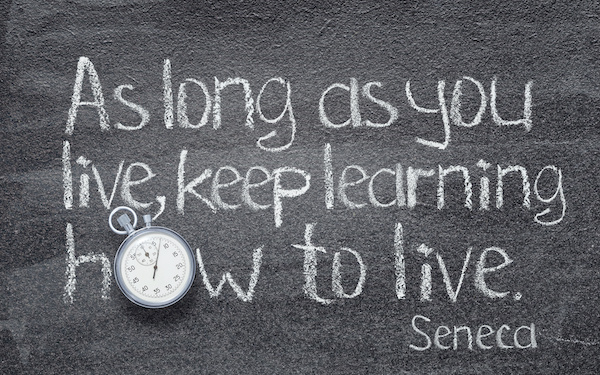 As long as you
live, keep learning
how to live.
Seneca